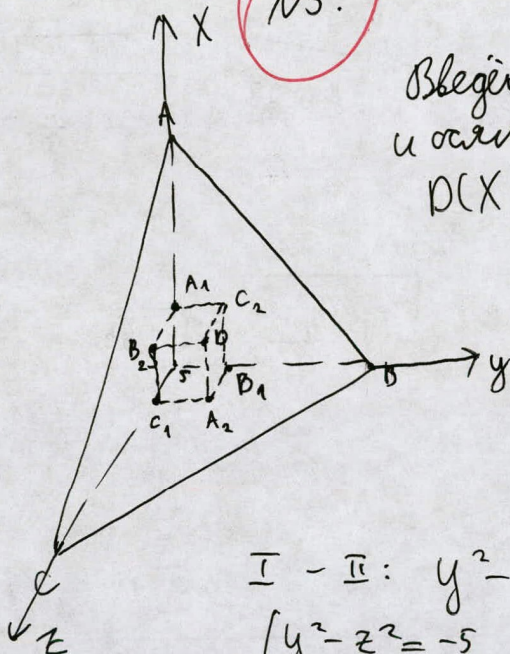 N5.
X
Введё
и осям
D(X
A
A₁
C₂
B₂
D
S
B₁
B
y
C₁
A₂
C
Z
I - II: y² -
{y² - z² = -5